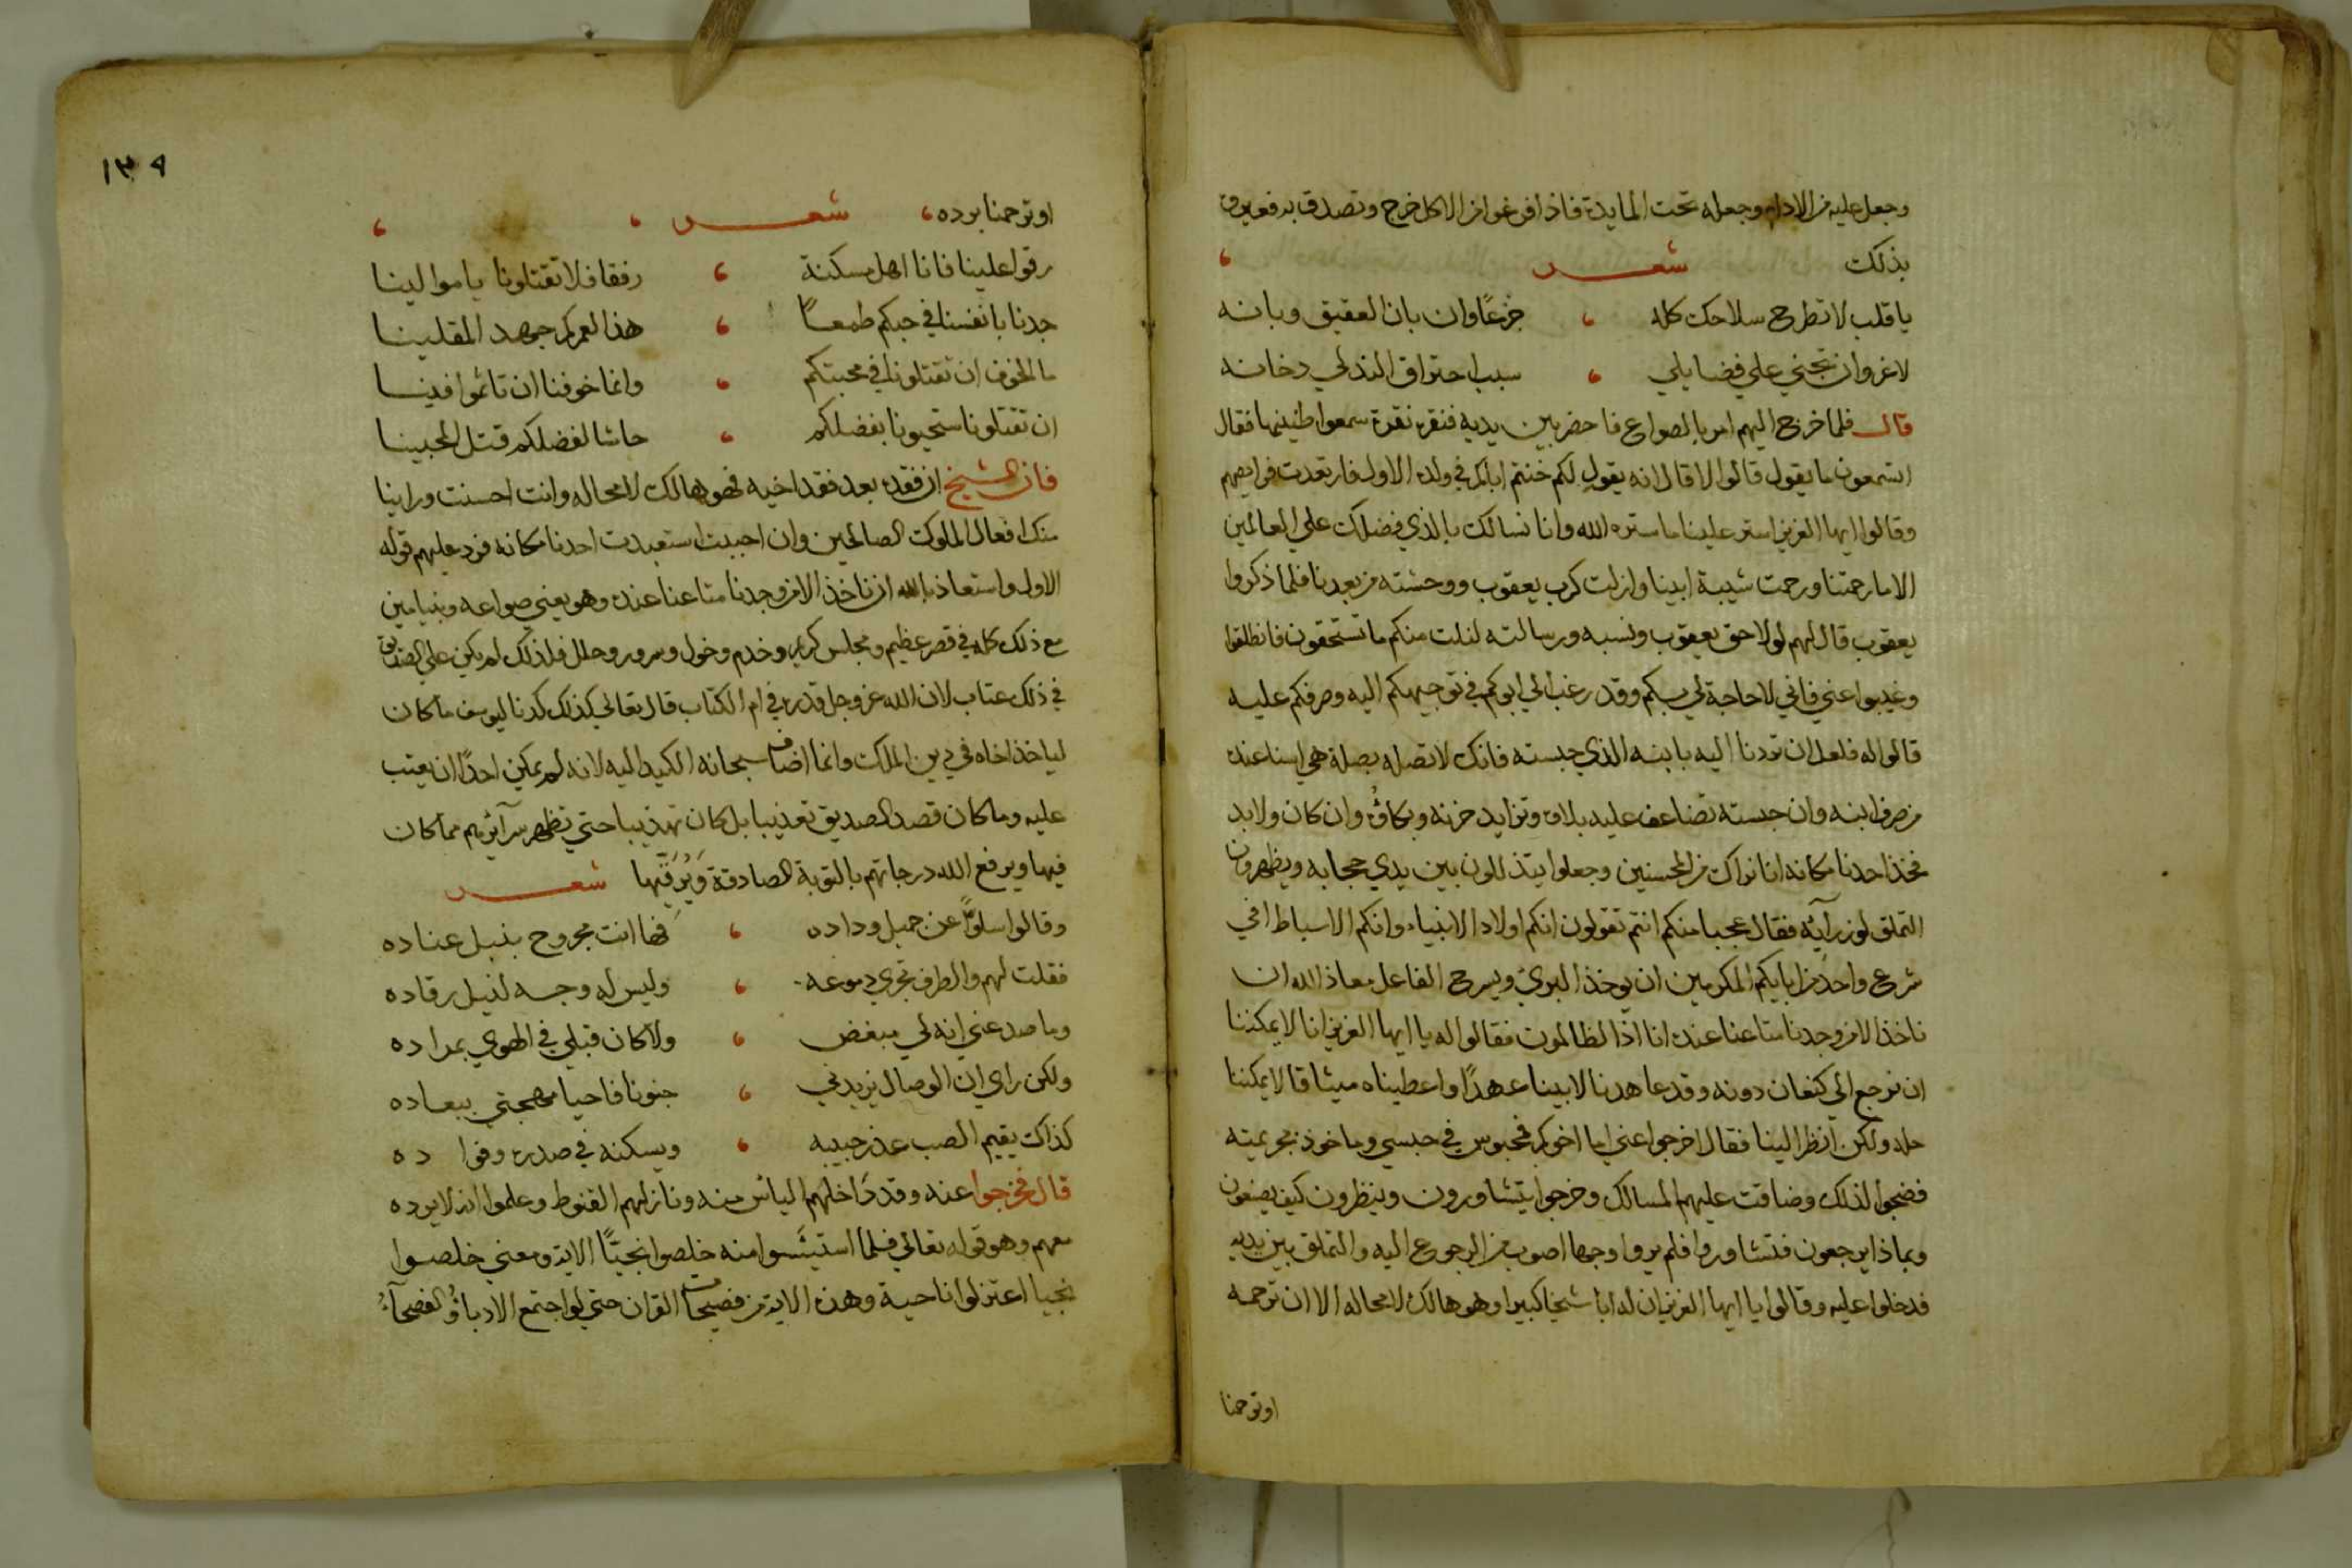 وجعل عليه من الادام وجعله تحت المايدة فاذا فرغوا من الاكل خرج وتصدق به فعوقب
بذلك شعر
ياقلب لا تطرح سلاحك كله ، جزعًا وان بان العقيق وبانه
لاغرو ان تجني علي فضايلي ، سبب احتراق المندلي دخانه
قال فلما خرج اليهم امر بالصواع فاحضر بين يديه فنقره نقرة سمعوا طنينها فقال
اتسمعون ما يقول قالوا لا قال انه يقول لكم خنتم اباكم في ولده الاول فارتعدت فرايصهم
وقالوا ايها العزيز استر علينا ما ستره الله وانا نسالك بالذي فضلك علي العالمين
الا ما رحمتنا ورحمت شيبة ابينا وازلت كرب يعقوب ووحشته من بعدنا فلما ذكروا
يعقوب قال لهم لولا حق يعقوب ونسبه ورسالته لنلت منكم ما تستحقون فانطلقوا
وغيبوا عني فاني لا حاجة لي بكم وقد رغب الي ابوكم في توجيهكم اليه وصرفكم عليه
قالوا له فلعل ان تردنا اليه بابنه الذي حبسته فانك لا تصله بصلة هي اسنا عنده
من صرف ابنه وان حبسته تضاعف عليه بلاه وتزايد حزنه وبكاؤه وان كان ولابد
فخذ احدنا مكانه انا نراك من المحسنين وجعلوا يتذللون بين يدي حجابه ويظهرون
التملق لوزرآئه فقال عجبا منكم انتم تقولون انكم اولاد الانبياء وانكم الاسباط افي
شرع واحد من ابايكم المكرمين ان يوخذ البريء ويسرح الفاعل معاذ الله ان
ناخذ الا من وجدنا متاعنا عنده انا اذا لظالمون فقالوا له يا ايها العزيز انا لا يمكننا
ان نرجع الي كنعان دونه وقد عاهدنا لابينا عهدًا واعطيناه ميثاقا لا يمكننا
حله ولكن انظر الينا فقال اخرجوا عني اما اخوكم فمحبوس في حبسي وماخوذ بجريمته
فضجوا لذلك وضاقت عليهم المسالك وخرجوا يتشاورون وينظرون كيف يصنعون
وبماذا يرجعون فتشاوروا فلم يروا وجها اصوب من الرجوع اليه والتملق بين يديه
فدخلوا عليه وقالوا يا ايها العزيز ان له ابا شيخا كبيرا وهو هالك لامحاله الا ان ترحمه
اوترحمنا
١٣٩
اوترحمنا برده ، شعر ، ،
رقوا علينا فانا اهل مسكنة ، رفقا فلا تقتلونا ياموالينا
جدنا بانفسنا في حبكم طمعًا ، هذا لعمركم جهد المقلينا
ما الخوف ان تقتلونا في محبتكم ، وانما خوفنا ان تاثموا فينا
ان تقتلونا ستحيونا بفضلكم ، حاشا لفضلكم قتل المحبينا
فان الشيخ ان فقده بعد فقد اخيه فهو هالك لامحاله وانت احسنت وراينا
منك افعال الملوك الصالحين وان احببت استعبدت احدنا مكانه فرد عليهم قوله
الاول واستعاذ بالله ان ناخذ الا من وجدنا متاعنا عنده وهو يعني صواعه وبنيامين
مع ذلك كله في قصر عظيم ومجلس كريم وخدم وخول وسرور وحلل فلذلك لم يكن علي الصديق
في ذلك عتاب لان الله عز وجل قدره في ام الكتاب قال تعالي كذلك كدنا ليوسف ما كان
لياخذ اخاه في دين الملك وانما اضاف سبحانه الكيد اليه لانه لم يمكن احدًا ان يعتب
عليه وما كان قصد الصديق تعذيبا بل كان تهذيبا حتي تظهر سرآئرهم مما كان
فيها ويرفع الله درجاتهم بالتوبة الصادقة ويُرَقّيها شعر
وقالوا سلوًّا عن جميل وداده ، فها انت مجروح بنبل عناده
فقلت لهم والطرف تجري دموعه ، وليس له وجه لنيل رقاده
وما صد عني انه لي مبغض ، ولا كان قبلي في الهوي بمراده
ولكن راي ان الوصال يزيدني ، جنونا فاحيا مهجتي ببعاده
كذاك يقيم الصب عذر حبيبه ، ويسكنه في صدره وفواده
قال فخرجوا عنه وقد داخلهم الياس منه ونازلهم القنوط وعلموا انه لا يرده
معهم وهو قوله تعالي فلما استيئسوا منه خلصوا نجيًّا الاية ومعني خلصوا
نجيا اعتزلوا ناحية وهذه الاية من فصيحات القران حتي لو اجتمع الادباؤ والفصحآءُ